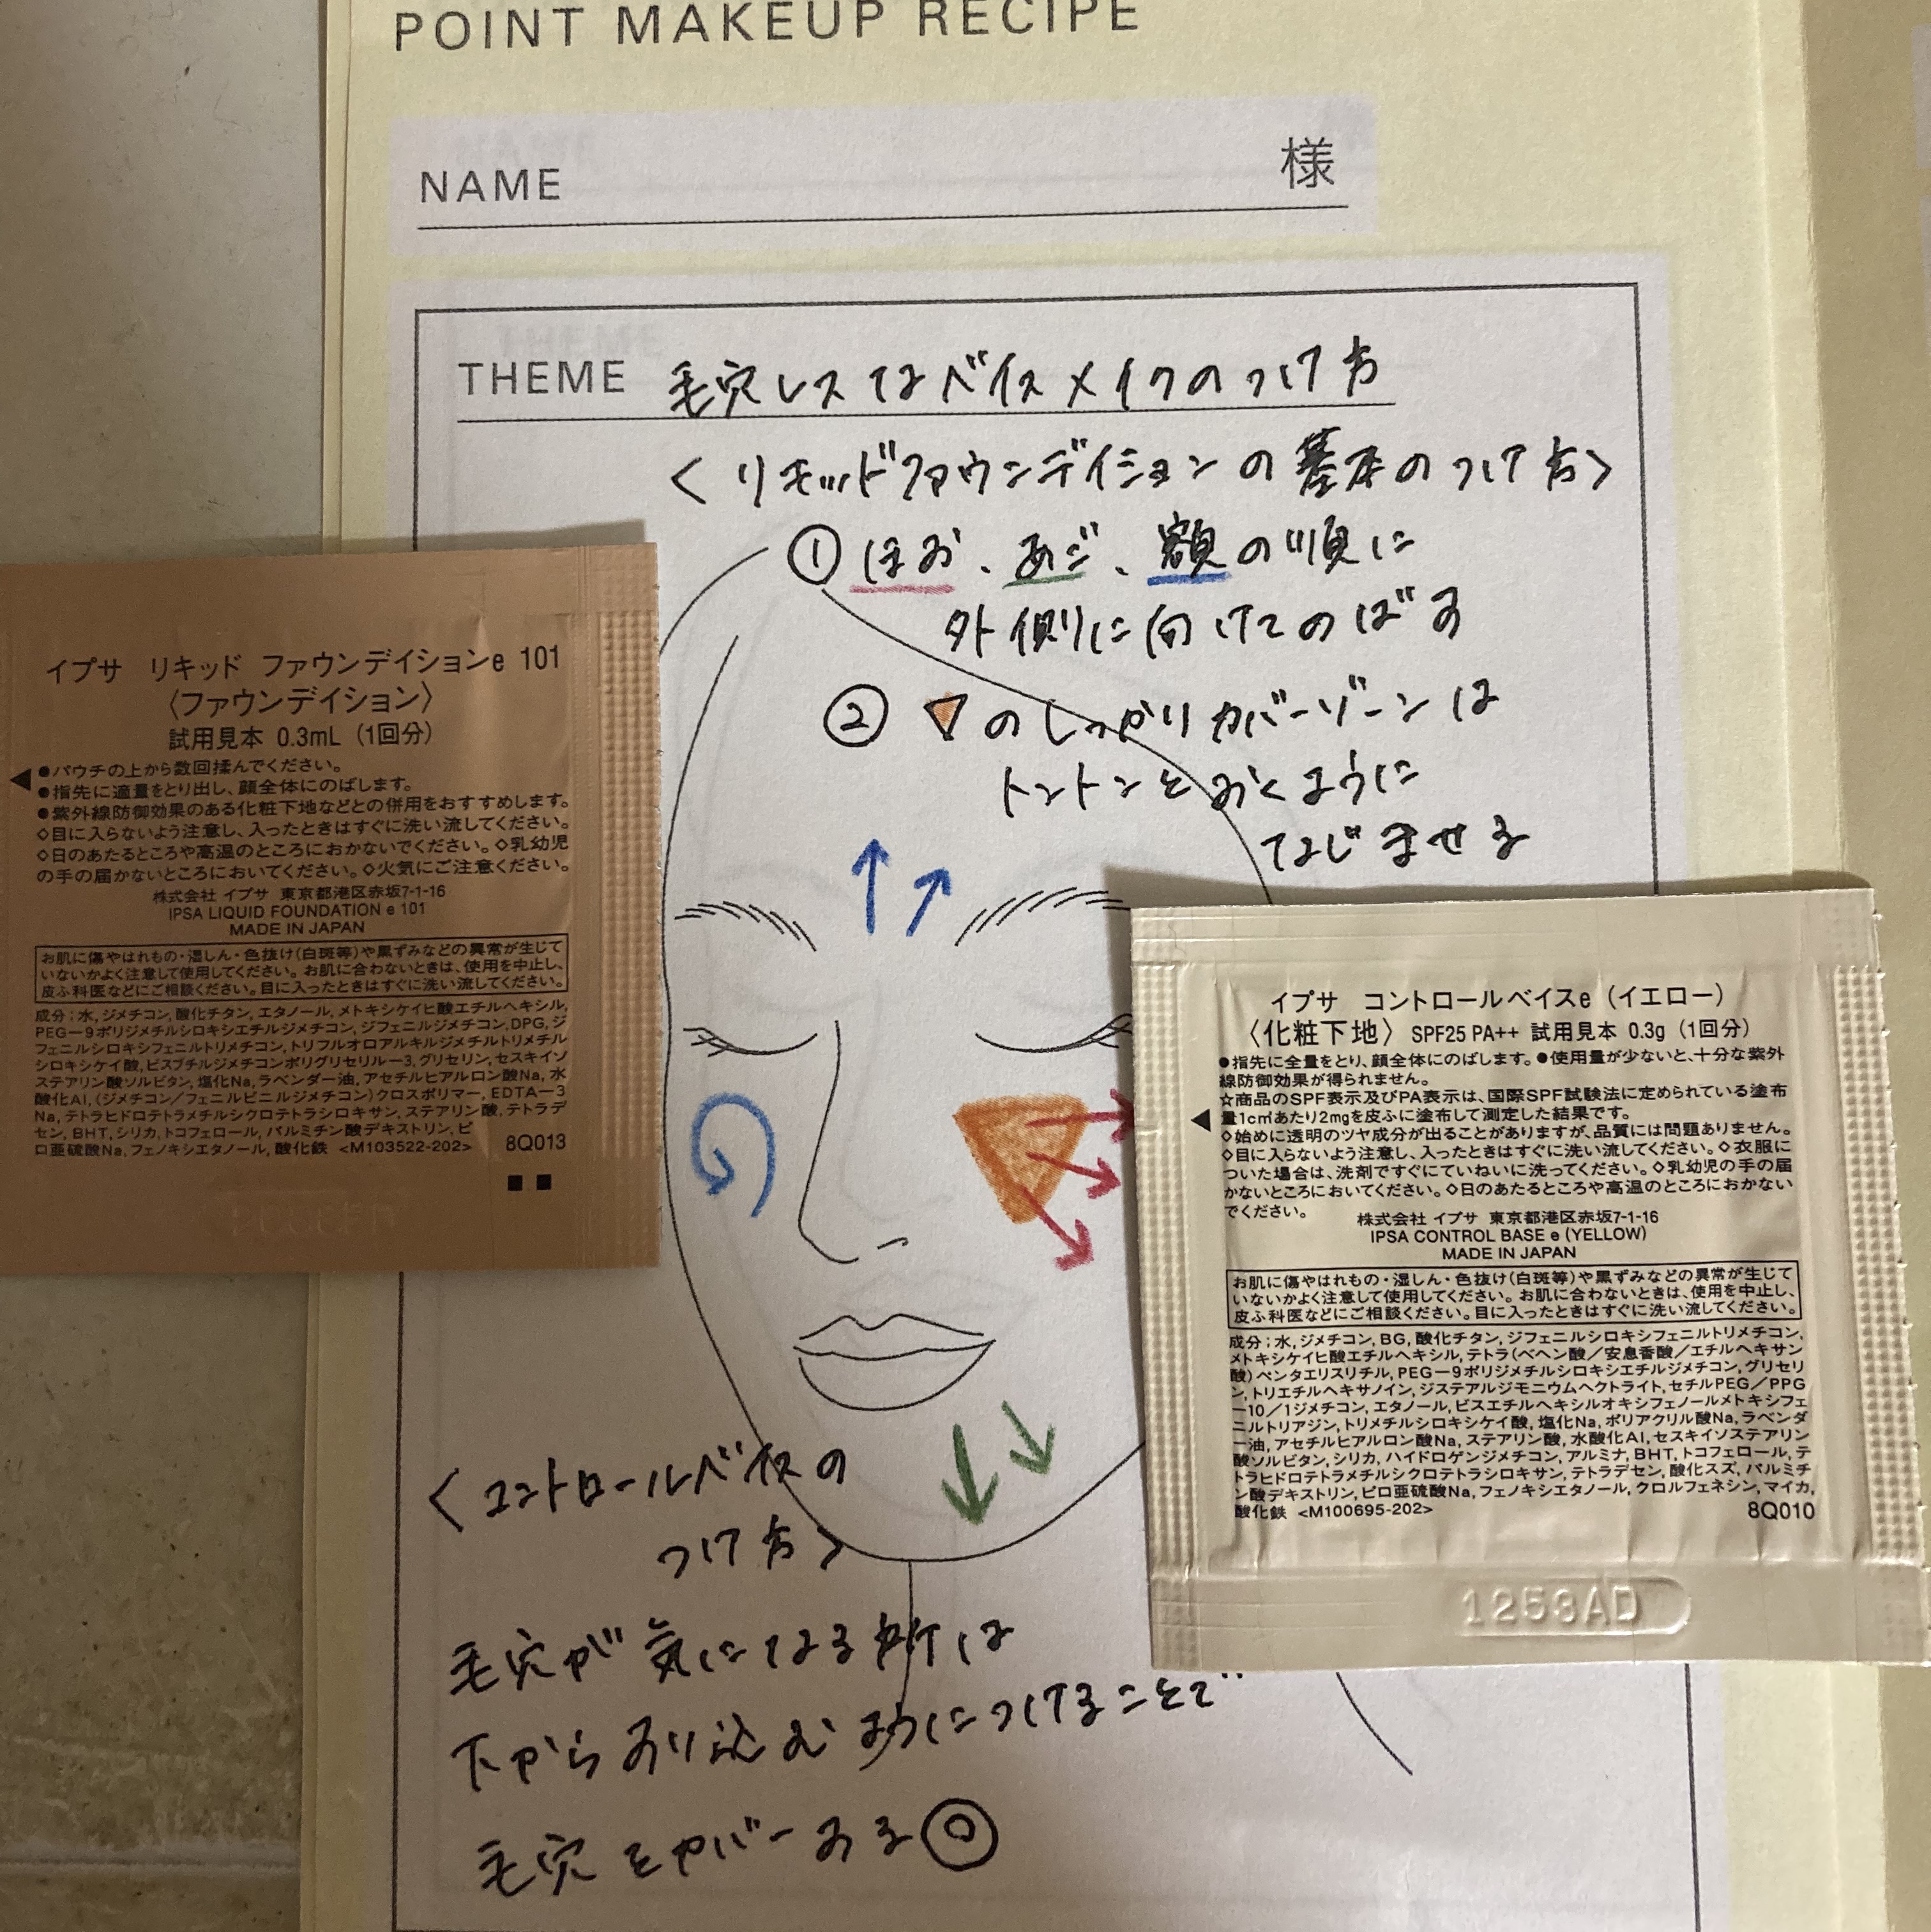 POINT MAKEUP RECIPE
NAME 様
THEME 毛穴レスなベイスメイクのつけ方
<リキッドファウンデイションの基本のつけ方>
① ほお、あご、額の順に
外側に向けてのばす
② ▽のしっかりカバーゾーンは
トントンとおくように
なじませる
<コントロールベイスの
つけ方>
毛穴が気になる所は
下からすり込むようにつけることで
毛穴をカバーする◎
イプサ リキッド ファウンデイションe 101
〈ファウンデイション〉
試用見本 0.3mL (1回分)
●パウチの上から数回揉んでください。
●指先に適量をとり出し、顔全体にのばします。
●紫外線防御効果のある化粧下地などとの併用をおすすめします。
◇目に入らないよう注意し、入ったときはすぐに洗い流してください。
◇日のあたるところや高温のところにおかないでください。◇乳幼児
の手の届かないところにおいてください。◇火気にご注意ください。
株式会社 イプサ 東京都港区赤坂7-1-16
IPSA LIQUID FOUNDATION e 101
MADE IN JAPAN
お肌に傷やはれもの・湿しん・色抜け(白斑等)や黒ずみなどの異常が生じて
いないかよく注意して使用してください。お肌に合わないときは、使用を中止し、
皮ふ科医などにご相談ください。目に入ったときはすぐに洗い流してください。
成分:水,ジメチコン,酸化チタン,エタノール,メトキシケイヒ酸エチルヘキシル,
PEG-9ポリジメチルシロキシエチルジメチコン,ジフェニルジメチコン,DPG,ジ
フェニルシロキシフェニルトリメチコン,トリフルオロアルキルジメチルトリメチル
シロキシケイ酸,ビスブチルジメチコンポリグリセリル-3,グリセリン,セスキイソ
ステアリン酸ソルビタン,塩化Na,ラベンダー油,アセチルヒアルロン酸Na,水
酸化Al,(ジメチコン/フェニルビニルジメチコン)クロスポリマー,EDTA-3
Na,テトラヒドロテトラメチルシクロテトラシロキサン,ステアリン酸,テトラデ
セン,BHT,シリカ,トコフェロール,パルミチン酸デキストリン,ピ
ロ亜硫酸Na,フェノキシエタノール,酸化鉄 <M103522-202> 8Q013
イプサ コントロールベイスe (イエロー)
〈化粧下地〉 SPF25 PA++ 試用見本 0.3g (1回分)
●指先に全量をとり、顔全体にのばします。●使用量が少ないと、十分な紫外
線防御効果が得られません。
☆商品のSPF表示及びPA表示は、国際SPF試験法に定められている塗布
量1c㎡あたり2mgを皮ふに塗布して測定した結果です。
◇始めに透明のツヤ成分が出ることがありますが、品質には問題ありません。
◇目に入らないよう注意し、入ったときはすぐに洗い流してください。◇衣服に
ついた場合は、洗剤ですぐにていねいに洗ってください。◇乳幼児の手の届
かないところにおいてください。◇日のあたるところや高温のところにおかない
でください。
株式会社 イプサ 東京都港区赤坂7-1-16
IPSA CONTROL BASE e (YELLOW)
MADE IN JAPAN
お肌に傷やはれもの・湿しん・色抜け(白斑等)や黒ずみなどの異常が生じて
いないかよく注意して使用してください。お肌に合わないときは、使用を中止し、
皮ふ科医などにご相談ください。目に入ったときはすぐに洗い流してください。
成分:水,ジメチコン,BG,酸化チタン,ジフェニルシロキシフェニルトリメチコン,
メトキシケイヒ酸エチルヘキシル,テトラ(ベヘン酸/安息香酸/エチルヘキサン
酸)ペンタエリスリチル,PEG-9ポリジメチルシロキシエチルジメチコン,グリセリ
ン,トリエチルヘキサノイン,ジステアルジモニウムヘクトライト,セチルPEG/PPG
-10/1ジメチコン,エタノール,ビスエチルヘキシルオキシフェノールメトキシフェ
ニルトリアジン,トリメチルシロキシケイ酸,塩化Na,ポリアクリル酸Na,ラベンダ
ー油,アセチルヒアルロン酸Na,ステアリン酸,水酸化Al,セスキイソステアリン
酸ソルビタン,シリカ,ハイドロゲンジメチコン,アルミナ,BHT,トコフェロール,テ
トラヒドロテトラメチルシクロテトラシロキサン,テトラデセン,酸化スズ,パルミチ
ン酸デキストリン,ピロ亜硫酸Na,フェノキシエタノール,クロルフェネシン,マイカ,
酸化鉄 <M100695-202> 8Q010
1253AD